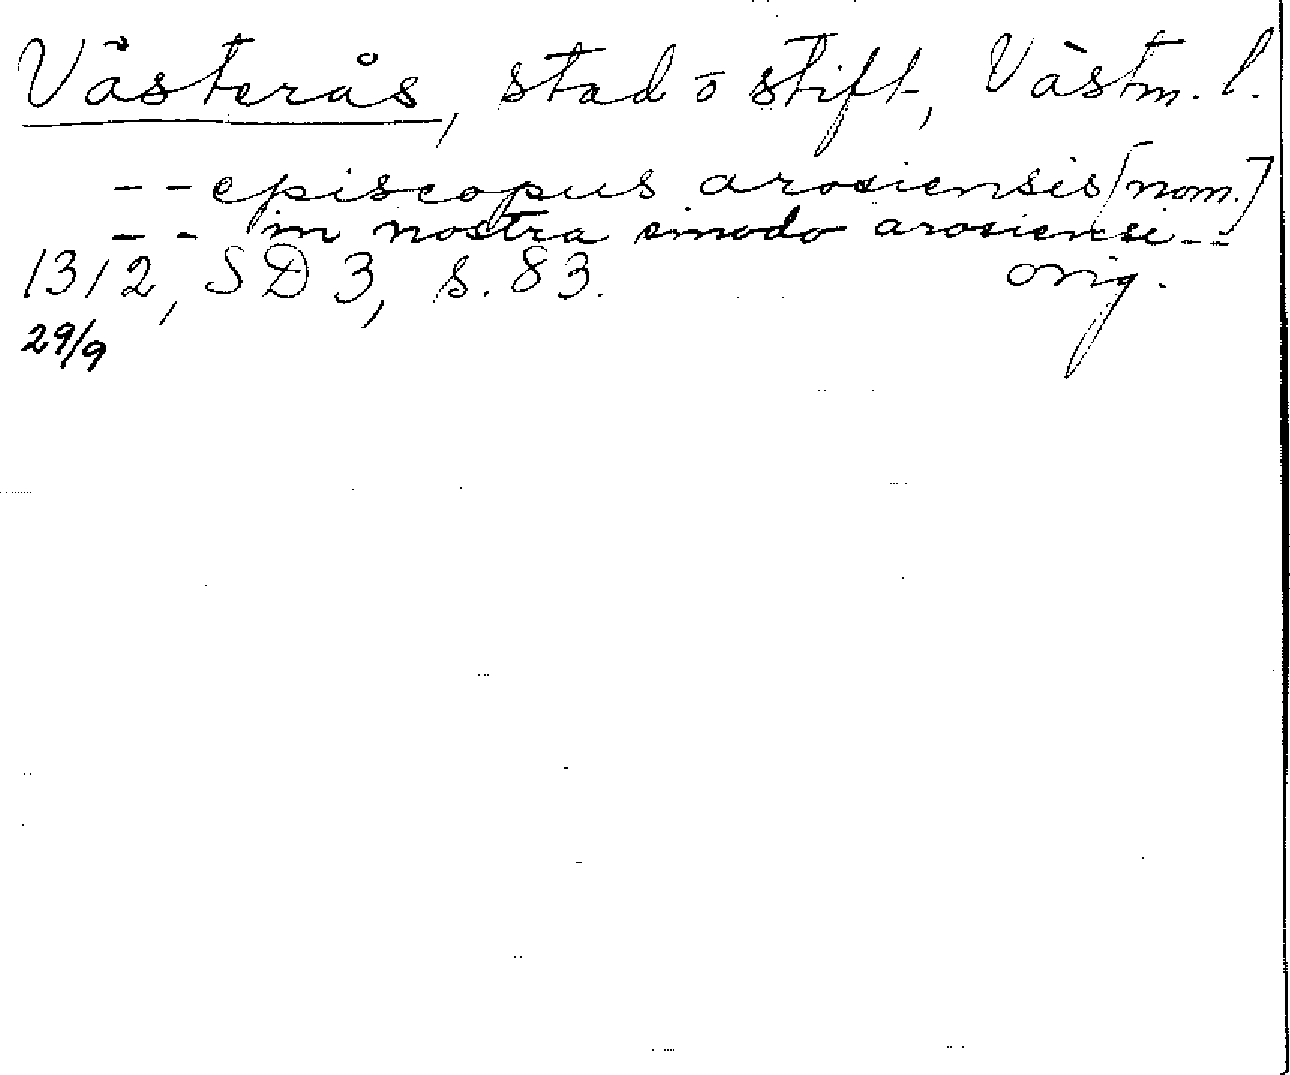 Västerås, stad o stift, Västm. l.
-- episcopus arosiensis [nom.]
-- in nostra sinodo arosiensi --
1312, SD 3, s. 83. orig.
29/9